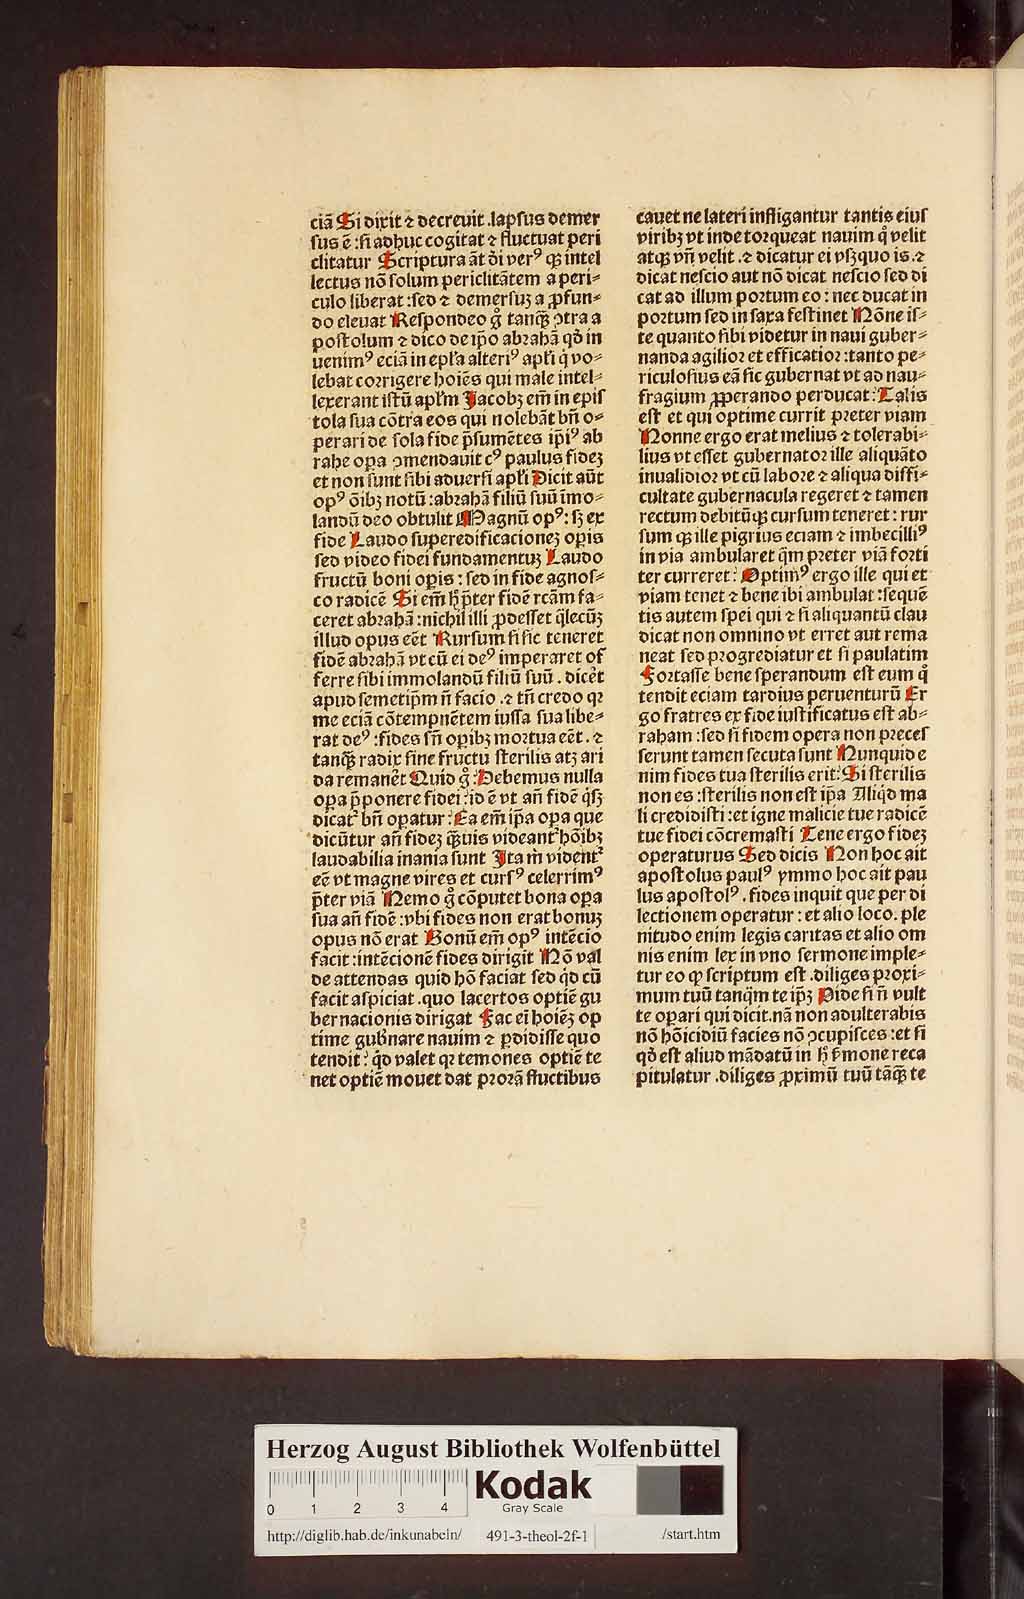 ciā Si dixit ⁊ decreuit .lapsus demer
sus ē :si adhuc cogitat ⁊ fluctuat peri
clitatur Scriptura āt di̅ verꝰ qꝫ intel
lectus nō solum periclitātem a peri⸗
culo liberat :sed ⁊ demersuꝫ a ꝓfun⸗
do eleuat Respondeo gͦ tanqꝫ ↄtra a
postolum ⁊ dico de ip̄o abrahā qd̄ in
uenimꝰ eciā in epl̓a alteriꝰ apl̓i q̇ vo⸗
lebat corrigere hoīes qui male intel⸗
lexerant istū apl̓m Jacobꝫ em̄ in epis
tola sua cōtra eos qui nolebāt bn̄ o⸗
perari de sola fide p̄sumētes ip̄iꝰ ab
rahe opa ↄmendauit cꝰ paulus fideꝫ
et non sunt sibi aduersi apl̓i Dicit aūt
opꝰ oībꝫ notū :abrahā filiū suū īmo⸗
landū deo obtulit Magnū opꝰ: sꝫ ex
fide Laudo superedificacioneꝫ oꝑis
sed video fidei fundamentuꝫ Laudo
fructū boni oꝑis : sed in fide agnos⸗
co radicē Si em̄ h̨ p̄ter fidē rcām fa⸗
ceret abrahā :nichil illi ꝓdesset q̄lecūꝫ
illud opus eēt Rursum si sic teneret
fidē abrahā vt cū ei deꝰ imperaret of
ferre sibi immolandū filiū suū . dicēt
apud semetip̄m n̄ facio .⁊ tn̄ credo qꝛ
me eciā cōtempnētem iussa sua libe⸗
rat deꝰ :fides sn̄ oꝑibꝫ mortua eēt .⁊
tanqꝫ radix sine fructu sterilis atꝫ ari
da remanēt Quid gͦ: Debemus nulla
opa p̄ponere fidei :id ē vt an̄ fidē q̇sꝫ
dicat᷑ bn̄ oꝑatur: Ea em̄ ip̄a opa que
dicūtur an̄ fideꝫ qꝫuis videant᷑ hōibꝫ
laudabilia inania sunt Ita m̄ vident᷑
eē vt magne vires et cursꝰ celerrimꝰ
p̄ter viā Nemo gͦ cōputet bona opa
sua an̄ fidē :vbi fides non erat bonuꝫ
opus nō erat Bonū em̄ opꝰ intēcio
facit :intēcionē fides dirigit Nō val
de attendas quid hō faciat sed qd̄ cū
facit aspiciat .quo lacertos optiē gu
bernacionis dirigat Fac ei̅ hoīeꝫ op
time gub̄nare nauim ⁊ ꝑdidisse quo
tendit: qd̄ valet qꝛ temones optiē te
net optiē mouet dat prorā fluctibus
cauet ne lateri infligantur tantis eius
viribꝫ vt inde torqueat nauim qͦ velit
atqꝫ vn̄ velit .⁊ dicatur ei vsꝫquo is .⁊
dicat nescio aut nō dicat nescio sed di
cat ad illum portum eo : nec ducat in
portum sed in saxa festinet Nōne is⸗
te quanto sibi videtur in naui guber⸗
nanda agilior et efficatior :tanto pe⸗
riculosius eā sic gubernat vt ad nau⸗
fragium ꝓꝑerando perducat: Talis
est et qui optime currit preter viam
Nonne ergo erat melius ⁊ tolerabi⸗
lius vt esset gubernator ille aliquāto
inualidior vt cū labore ⁊ aliqua diffi⸗
cultate gubernacula regeret ⁊ tamen
rectum debitūqꝫ cursum teneret : rur
sum qꝫ ille pigrius eciam ⁊ imbecilliꝰ
in via ambularet q̄m preter viā forti
ter curreret: Optimꝰ ergo ille qui et
viam tenet ⁊ bene ibi ambulat :sequē
tis autem spei qui ⁊ si aliquantū clau
dicat non omnino vt erret aut rema
neat sed progrediatur et si paulatim
Fortasse bene sperandum est eum qͦ
tendit eciam tardius peruenturū Er
go fratres ex fide iustificatus est ab⸗
raham :sed si fidem opera non preces
serunt tamen secuta sunt Nunquid e
nim fides tua sterilis erit: Si sterilis
non es :sterilis non est ip̄a Aliqd̄ ma
li credidisti :et igne malicie tue radicē
tue fidei cōcremasti Tene ergo fideꝫ
operaturus Sed dicis Non hoc ait
apostolus paulꝰ ymmo hoc ait pau
lus apostolꝰ . fides inquit que per di
lectionem operatur : et alio loco. ple
nitudo enim legis caritas et alio om
nis enim lex in vno sermone imple⸗
tur eo ꝙ scriptum est .diliges proxi⸗
mum tuū tanq̄m te ip̄ꝫ Vide si n̄ vult
te oꝑari qui dicit.nā non adulterabis
nō hōicidiū facies nō ↄcupisces :et si
qd̄ est aliud mādatū in h̨ ẜmone reca
pitulatur .diliges ꝓximū tuū tāqꝫ te
Herzog August Bibliothek Wolfenbüttel
0 1 2 3 4 Kodak
Gray Scale
http://diglib.hab.de/inkunabeln/ 491-3-theol-2f-1 /start.htm